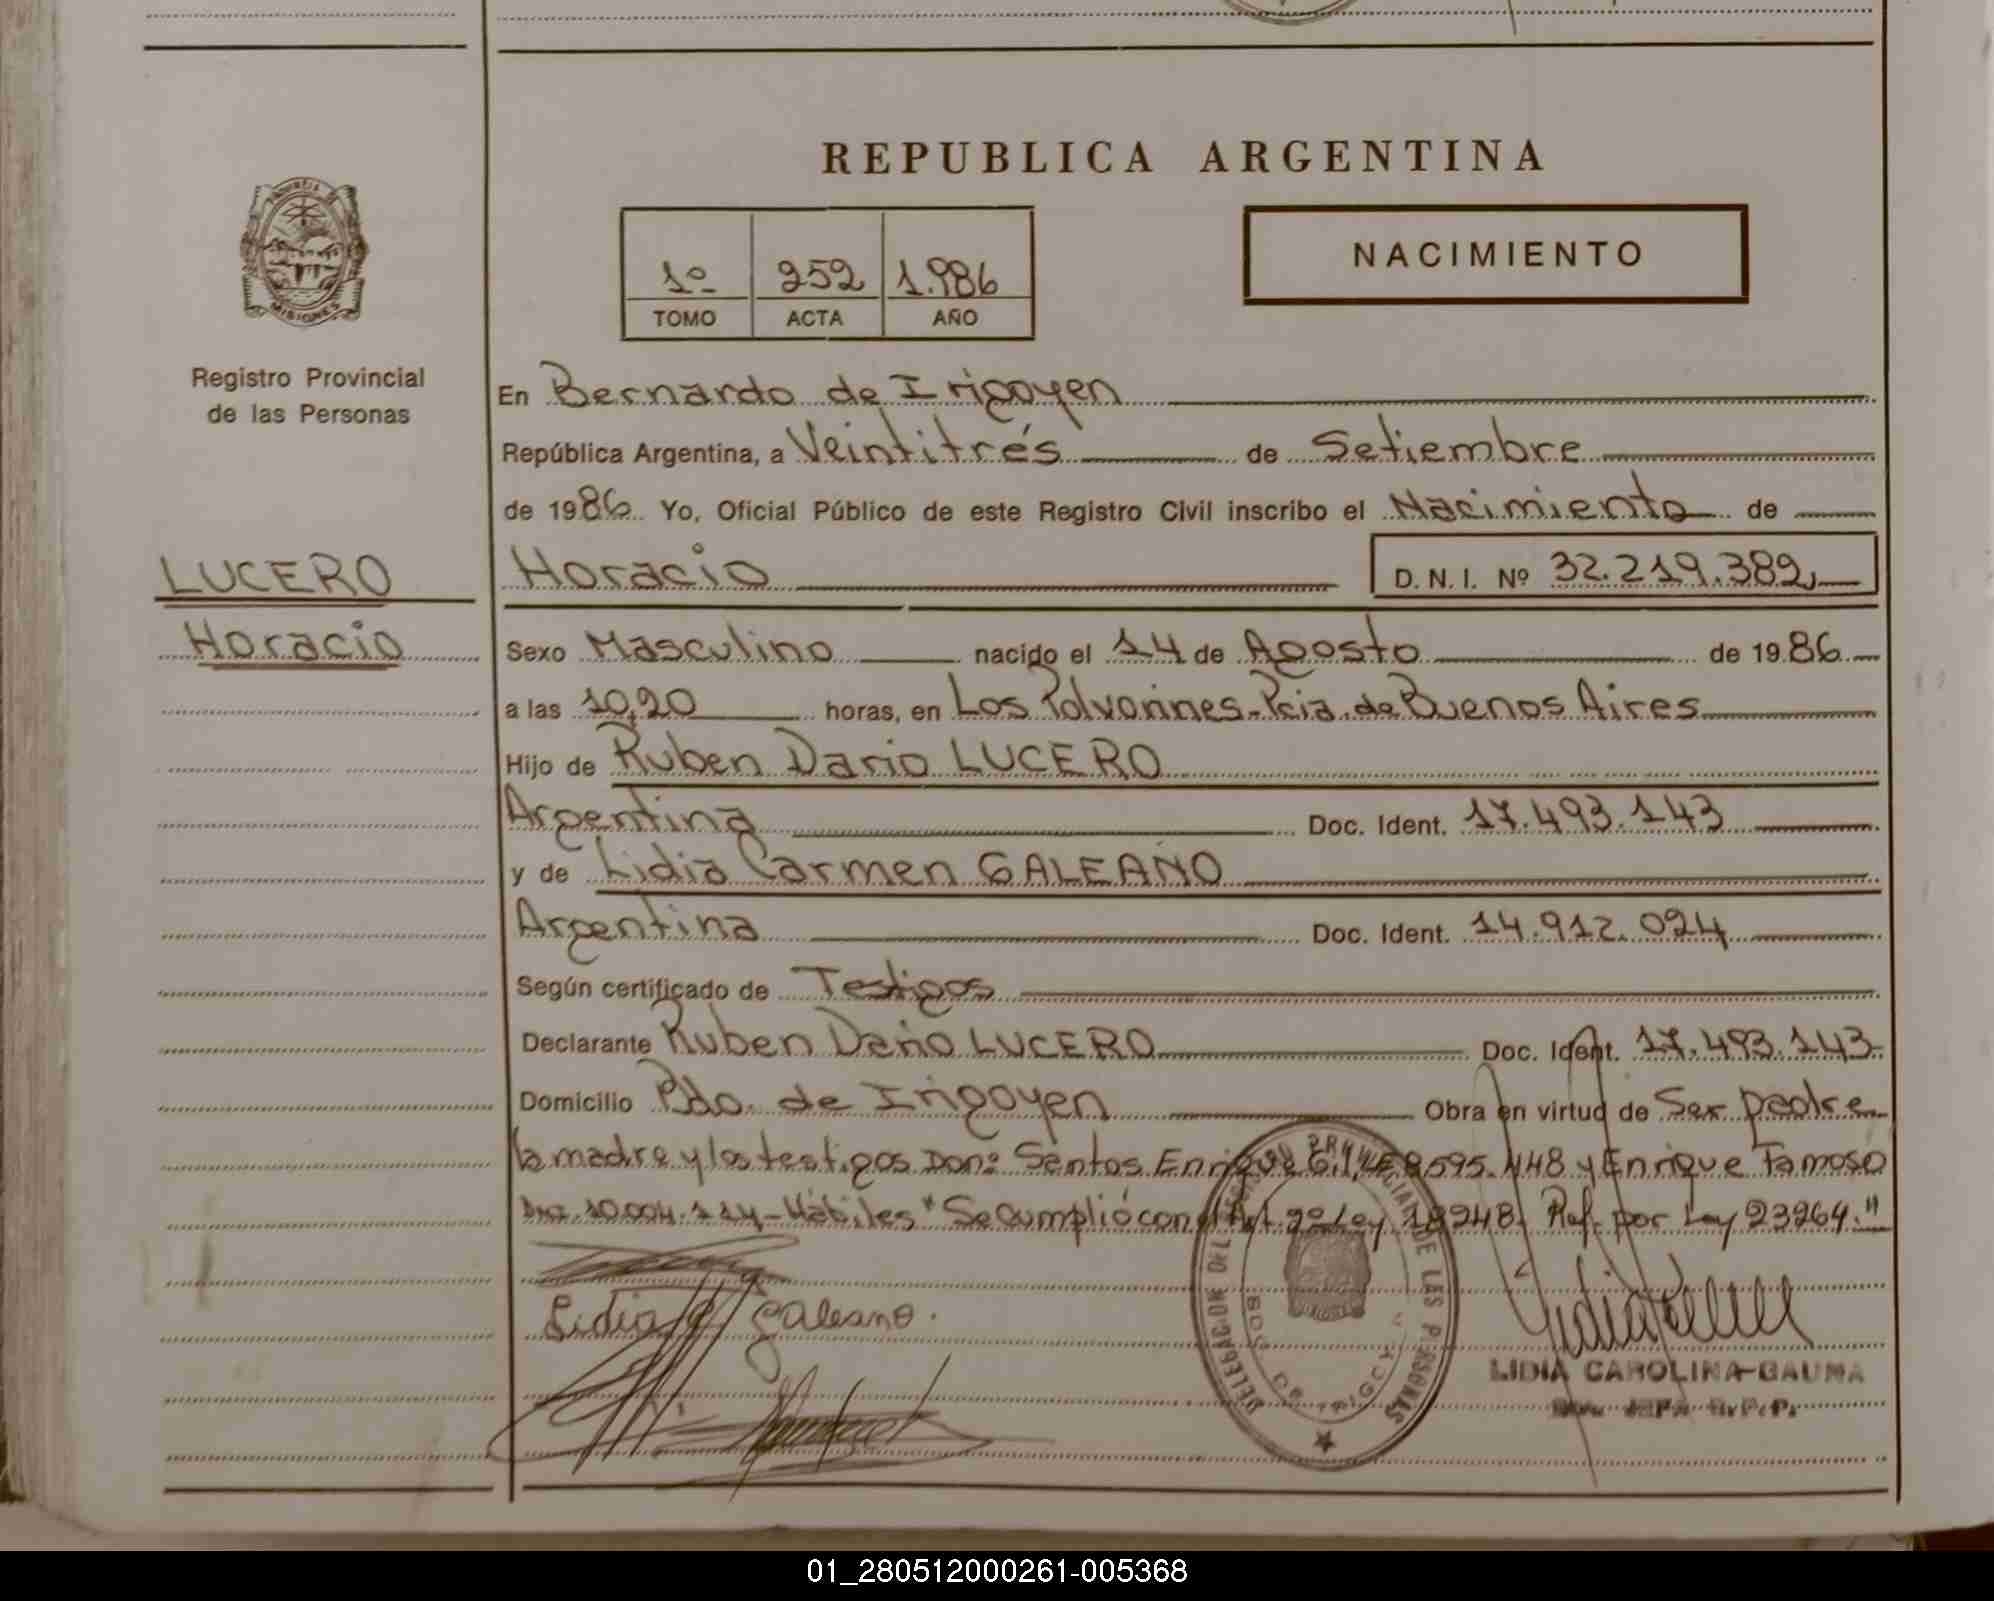 REPUBLICA ARGENTINA
NACIMIENTO
1º 252 1.986
TOMO ACTA AÑO
PROVINCIA DE
MISIONES
Registro Provincial
de las Personas
LUCERO
Horacio
En Bernardo de Irigoyen
República Argentina, a Veintitrés de Setiembre
de 1986 Yo, Oficial Público de este Registro Civil inscribo el Nacimiento de
Horacio D.N.I. Nº 32.219.382
Sexo Masculino nacido el 14 de Agosto de 1986
a las 10,20 horas, en Los Polvorines - Pcia. de Buenos Aires
Hijo de Ruben Dario LUCERO
Argentina Doc. Ident. 17.493.143
y de Lidia Carmen GALEANO
Argentina Doc. Ident. 14.912.024
Según certificado de Testigos
Declarante Ruben Dario LUCERO Doc. Ident. 17.493.143
Domicilio Bdo. de Irigoyen Obra en virtud de Ser padre
la madre y los testigos Don: Santos Enrique Gil 8.595.448 y Enrique Famoso
10.004.114 - Hábiles "Se cumplió con el Art. 2º Ley 18248. Ref. por Ley 23264."
Lidia C Galeano.
DELEGACION DEL REGISTRO PROVINCIAL DE LAS PERSONAS
BDO. DE IRIGOYEN
LIDIA CAROLINA GAUNA
01_280512000261-005368